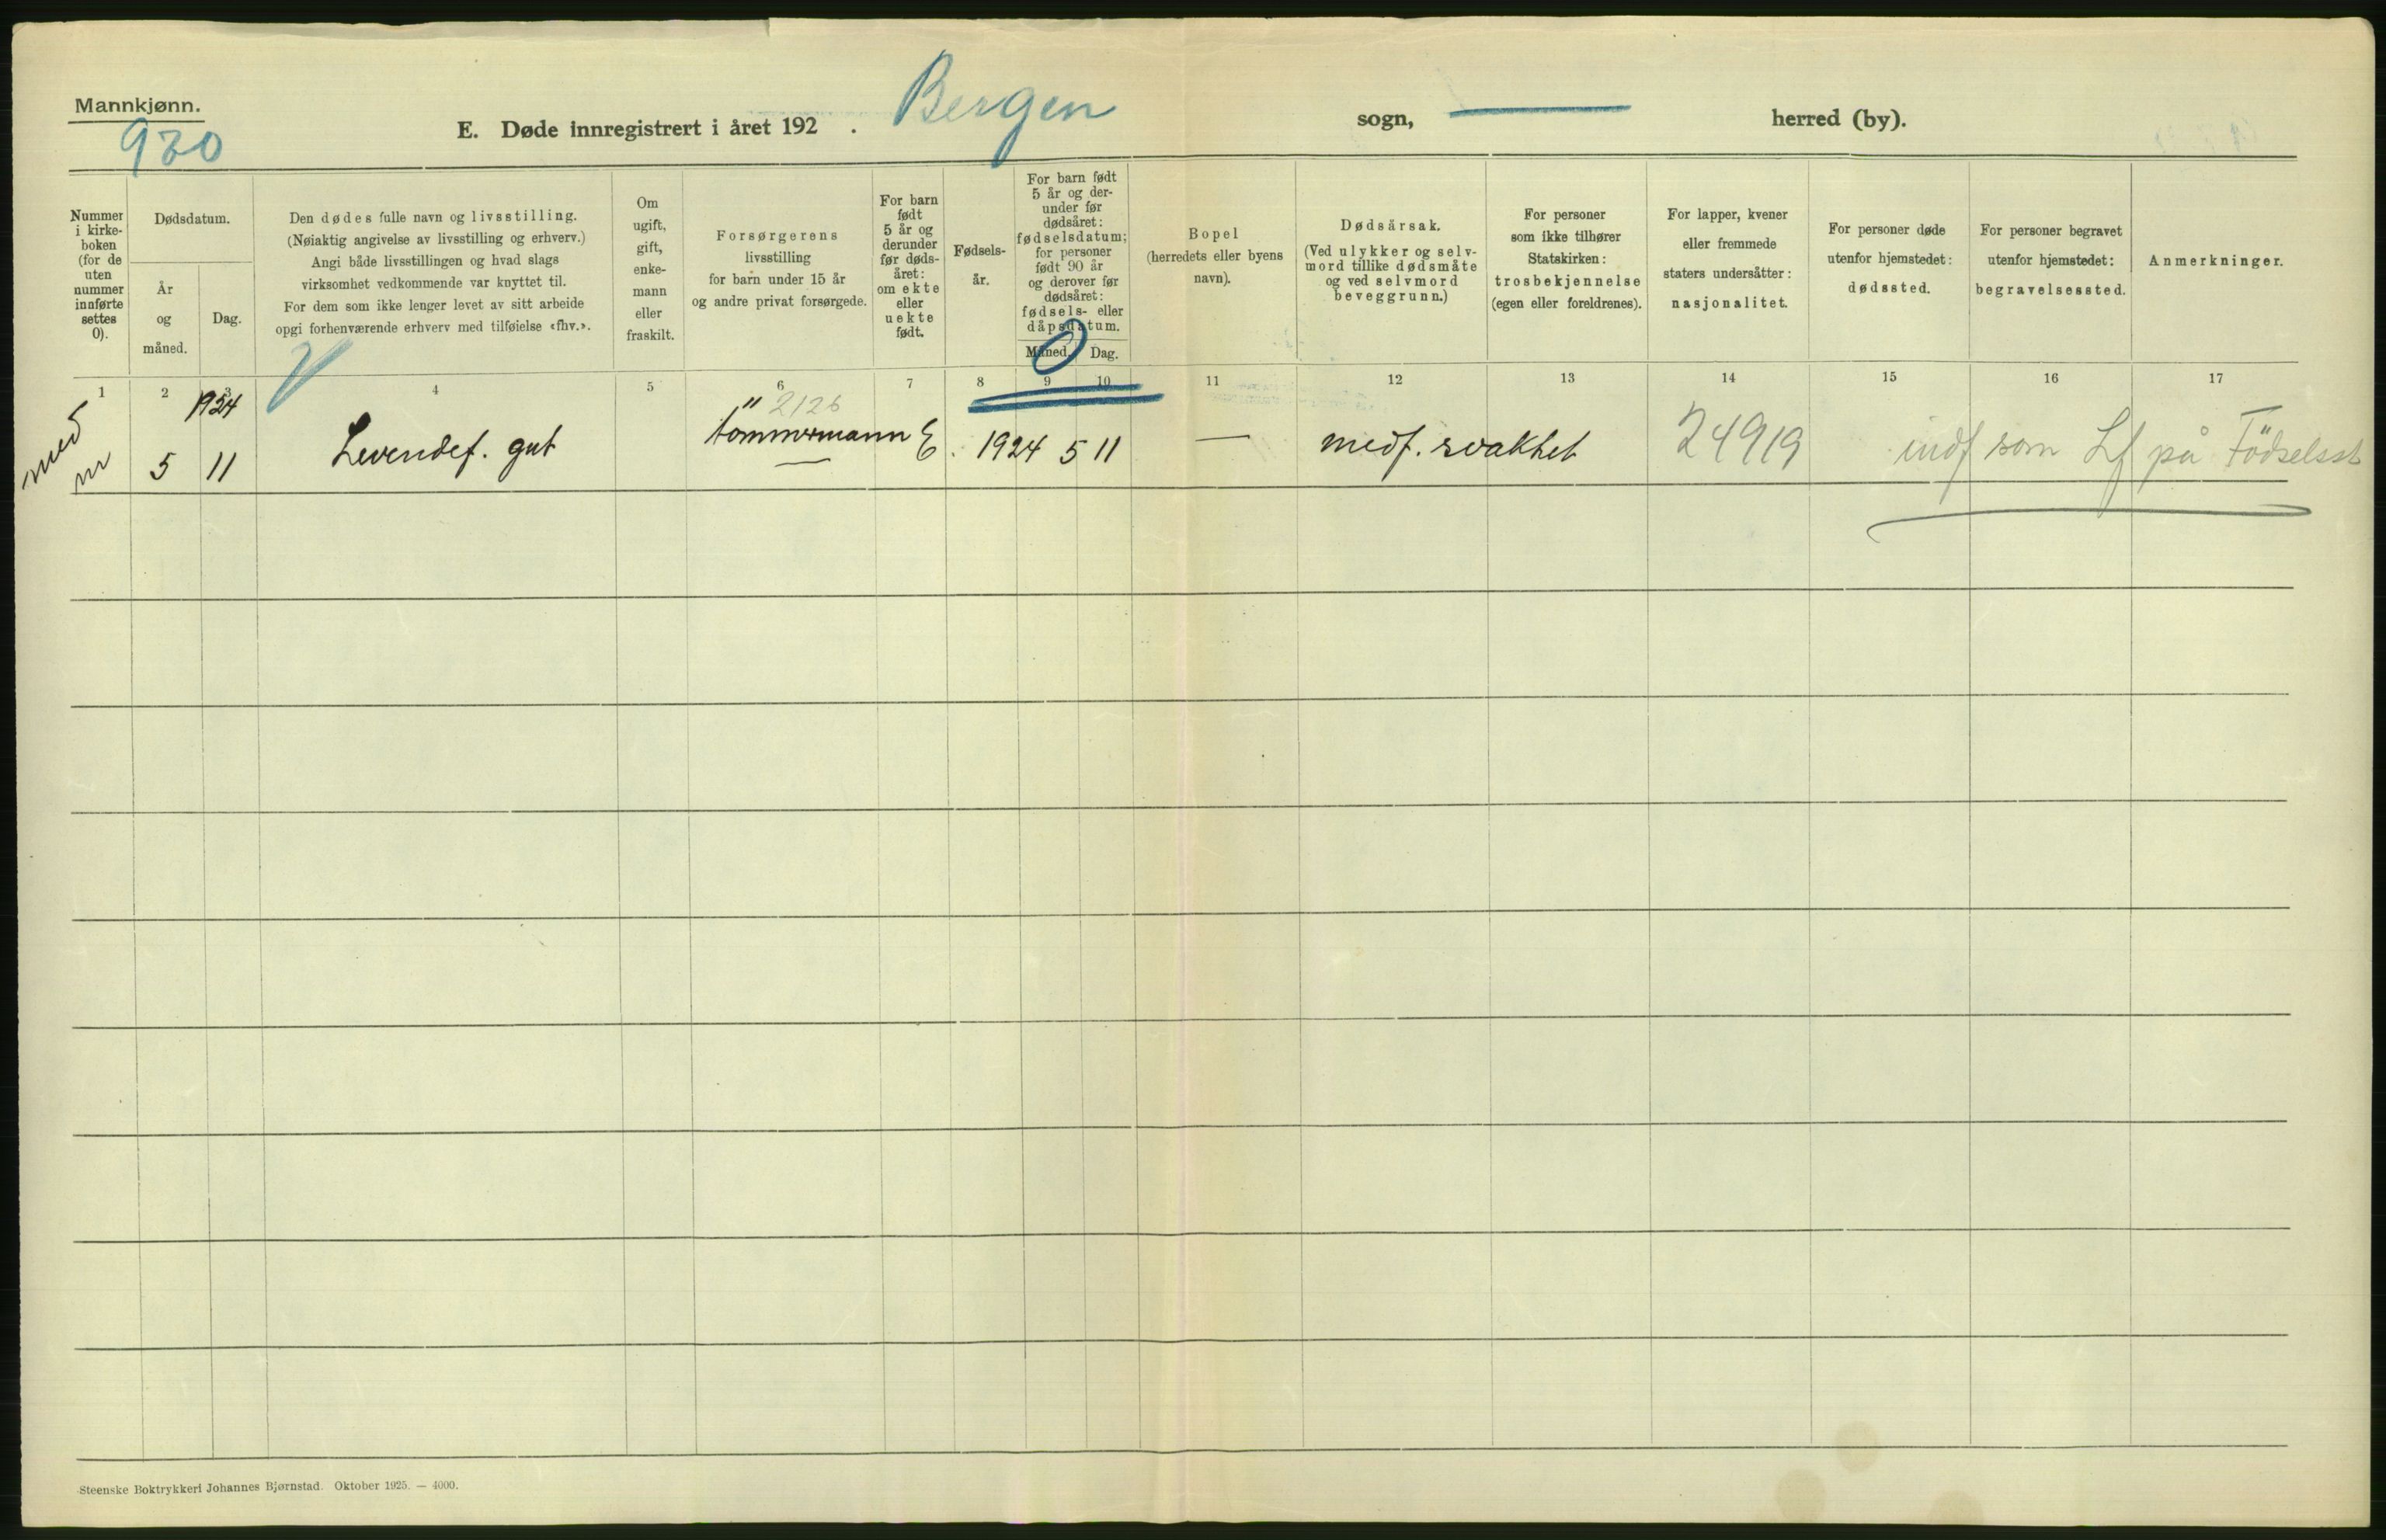 Mannkjønn.
920
E. Døde innregistrert i året 192 . Bergen sogn, herred (by).
Nummer i kirke-boken (for de uten nummer innførte settes 0).
Dødsdatum.
År og måned.
Dag.
Den dødes fulle navn og livsstilling.
(Nøiaktig angivelse av livsstilling og erhverv.)
Angi både livsstillingen og hvad slags
virksomhet vedkommende var knyttet til.
For dem som ikke lenger levet av sitt arbeide
opgi forhenværende erhverv med tilføielse «fhv.».
Om
ugift,
gift,
enke-
mann
eller
fraskilt.
Forsørgerens
livsstilling
for barn under 15 år
og andre privat forsørgede.
For barn
født
5 år og
derunder
før døds-
året:
om ekte
eller
uekte
født.
Fødsels-
år.
For barn født
5 år og der-
under før
dødsåret:
fødselsdatum;
for personer
født 90 år
og derover før
dødsåret:
fødsels- eller
dåpsdatum.
Måned. Dag.
0
Bopel
(herredets eller byens
navn).
Dødsårsak.
(Ved ulykker og selv-
mord tillike dødsmåte
og ved selvmord
beveggrunn.)
For personer
som ikke tilhører
Statskirken:
trosbekjennelse
(egen eller foreldrenes).
For lapper, kvener
eller fremmede
staters undersåtter:
nasjonalitet.
For personer døde
utenfor hjemstedet:
dødssted.
For personer begravet
utenfor hjemstedet:
begravelsessted.
Anmerkninger.
1 2 3 4 5 6 7 8 9 10 11 12 13 14 15 16 17
1924
" 2126
med
nr
5 11 Levendef. gut tømmermann E. 1924 5 11 — medf. svakhet 24919 indf som Lf på Födselsst
Steenske Boktrykkeri Johannes Bjørnstad. Oktober 1925. — 4000.